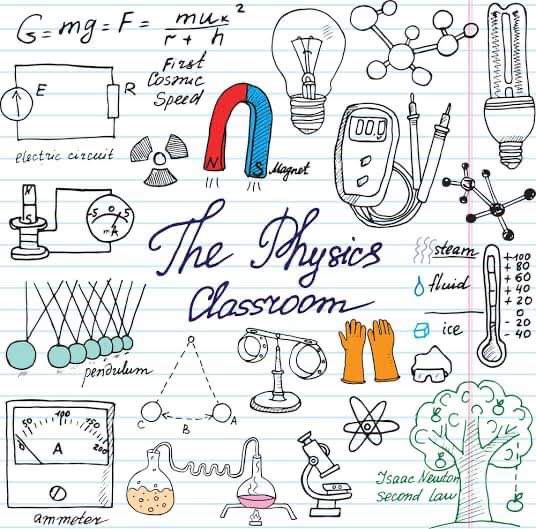 G = mg = F = mu₁c² / r + h
First
Cosmic
Speed
E
R
electric circuit
N
S
Magnet
00.0
N
S
-5
5
mA
The Physics
Classroom
steam
fluid
ice
+100
+ 80
+ 60
+ 40
+ 20
0
- 20
- 40
pendulum
C
B
A
0
50
100
150
200
A
ammeter
Isaac Newton
second Law